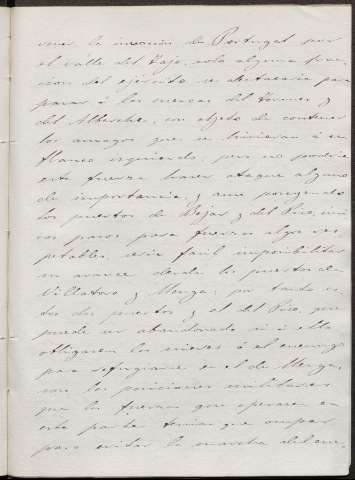 venir la invasión de Portugal por
el valle del Tajo, solo alguna frac-
cion del ejército se destacaria para
pasar á las cuencas del Tormes y
del Alberche, con objeto de contener
los amagos que se hicieran á su
flanco izquierdo; pero no podria
esta fuerza hacer ataque alguno
de importancia, y aun poseyendo
los puertos de Bejar y del Pico, úni
cos pasos para fuerzas algo res-
petables, seria facil imposibilitar
su avance desde los puertos de
Villatoro y Menga; por tanto es-
tos dos puertos y el del Pico, que
puede ser abandonado si á ello
obligasen las nieves ó el enemigo
para refugiarse en el de Menga,
son las posiciones militares
que las fuerzas que operasen en
esta parte tenian que ocupar
para evitar la marcha del ene-